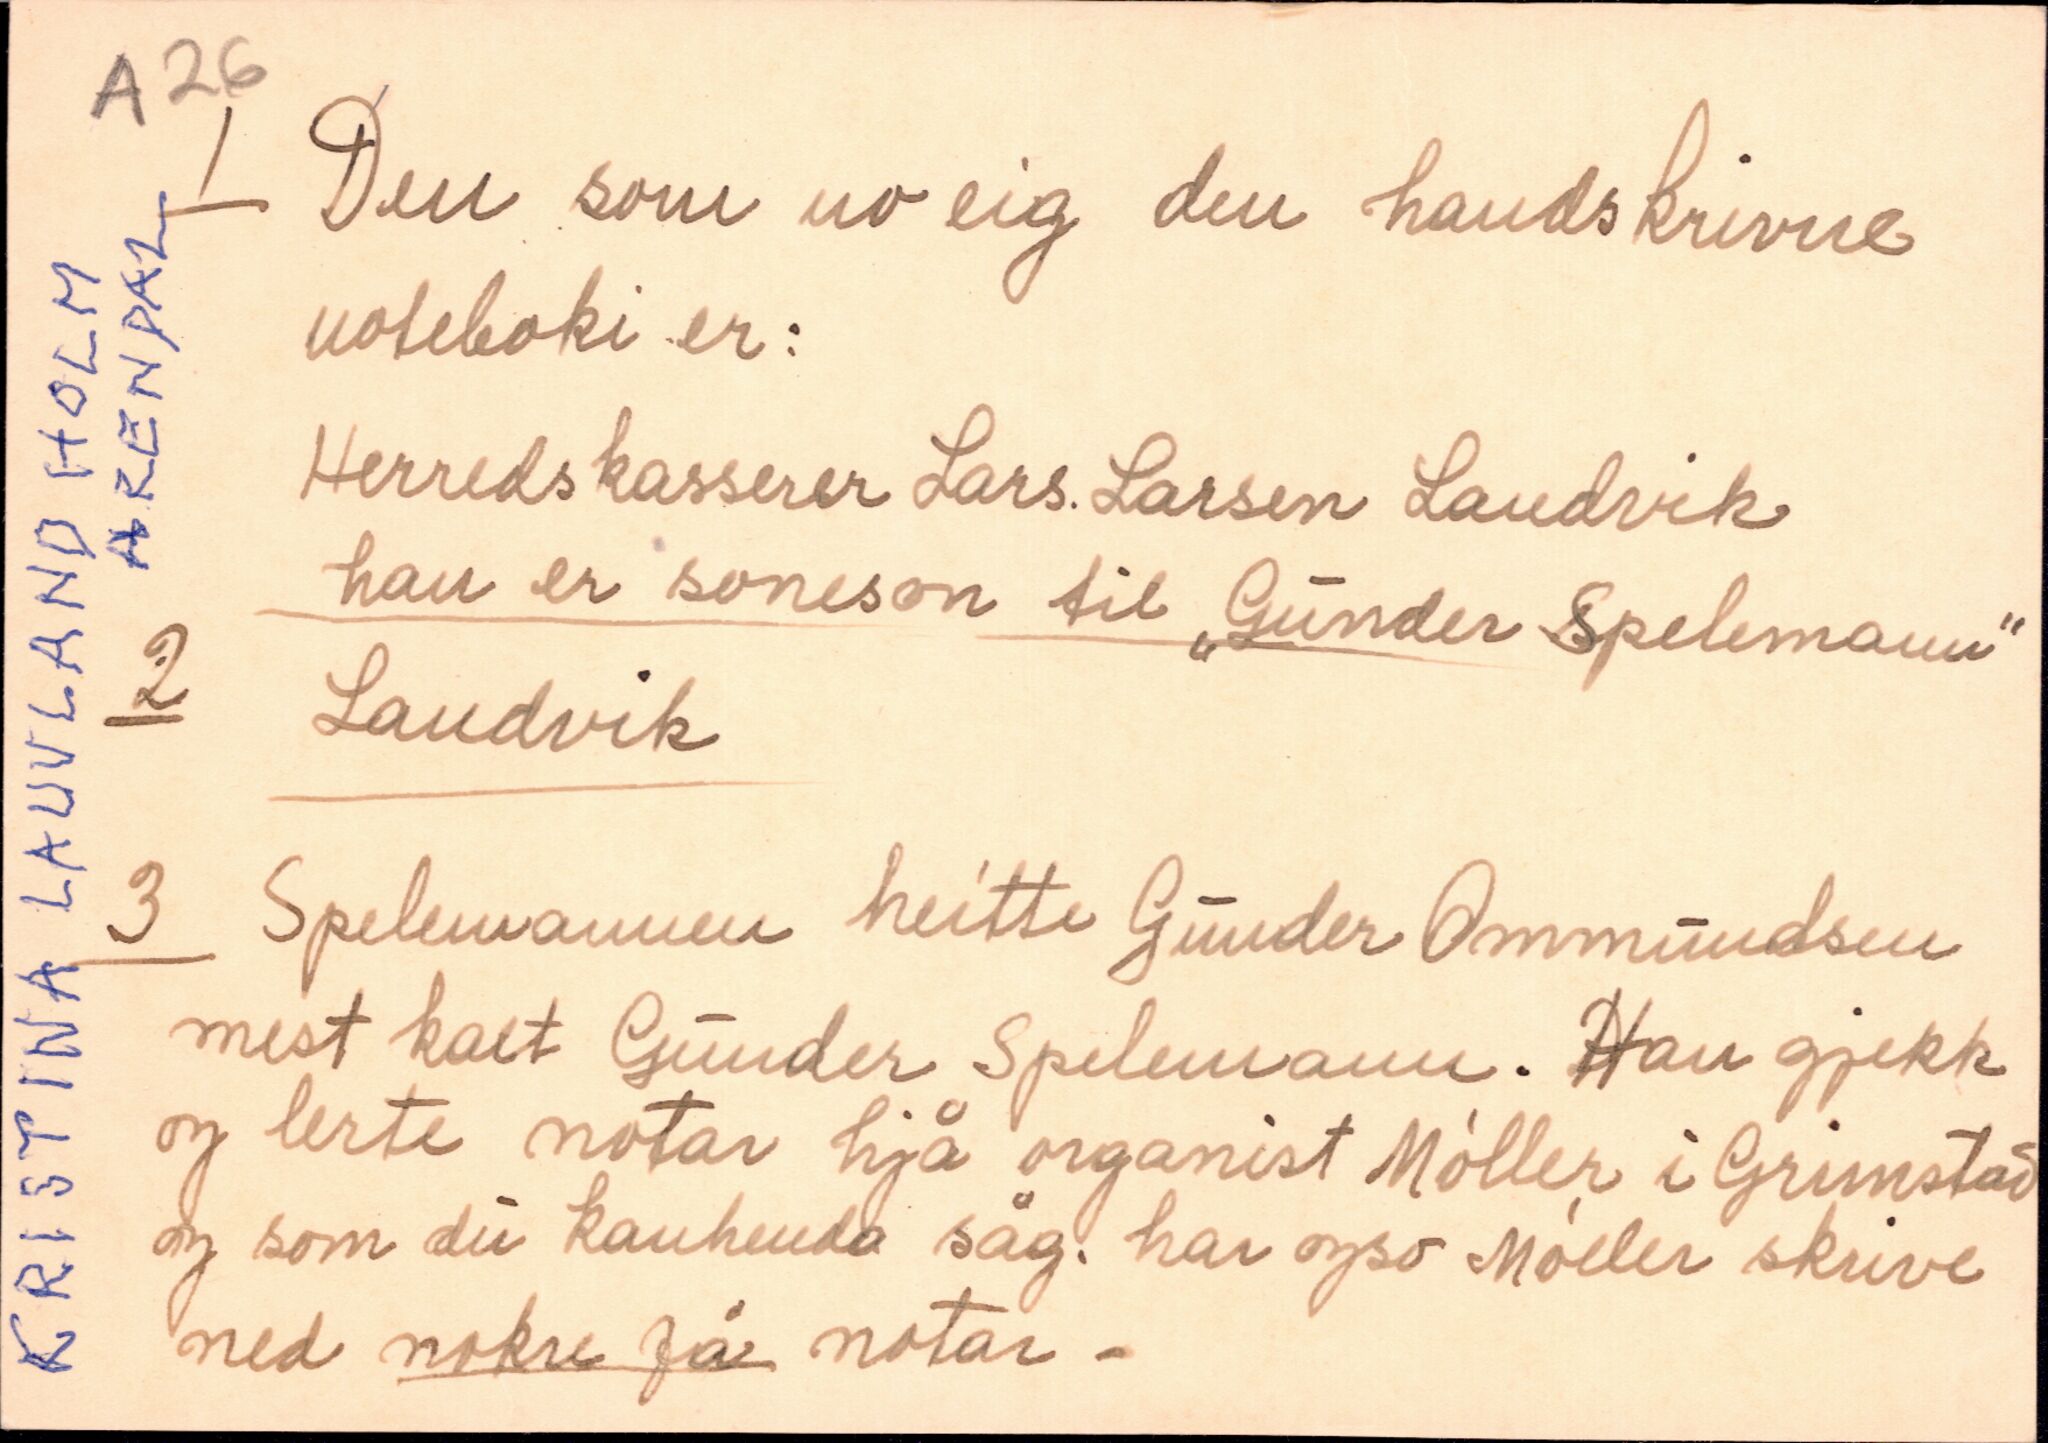 A 26
KRISTINA LAUVLAND HOLM
ARENDAL
1 Den som no eig den handskrivne
noteboki er:
Herredskasserer Lars. Larsen Landvik
han er soneson til „Gūnder Spelemann"
2 Landvik
3 Spelemannen heitte Gūnder Ommūndsen
mest kalt Gūnder Spelemann. Han gjekk
og lerte notar hjå organist Móller i Grimstad
og som dū kanhenda såg. har ogso Móller skrive
ned nokre få notar -